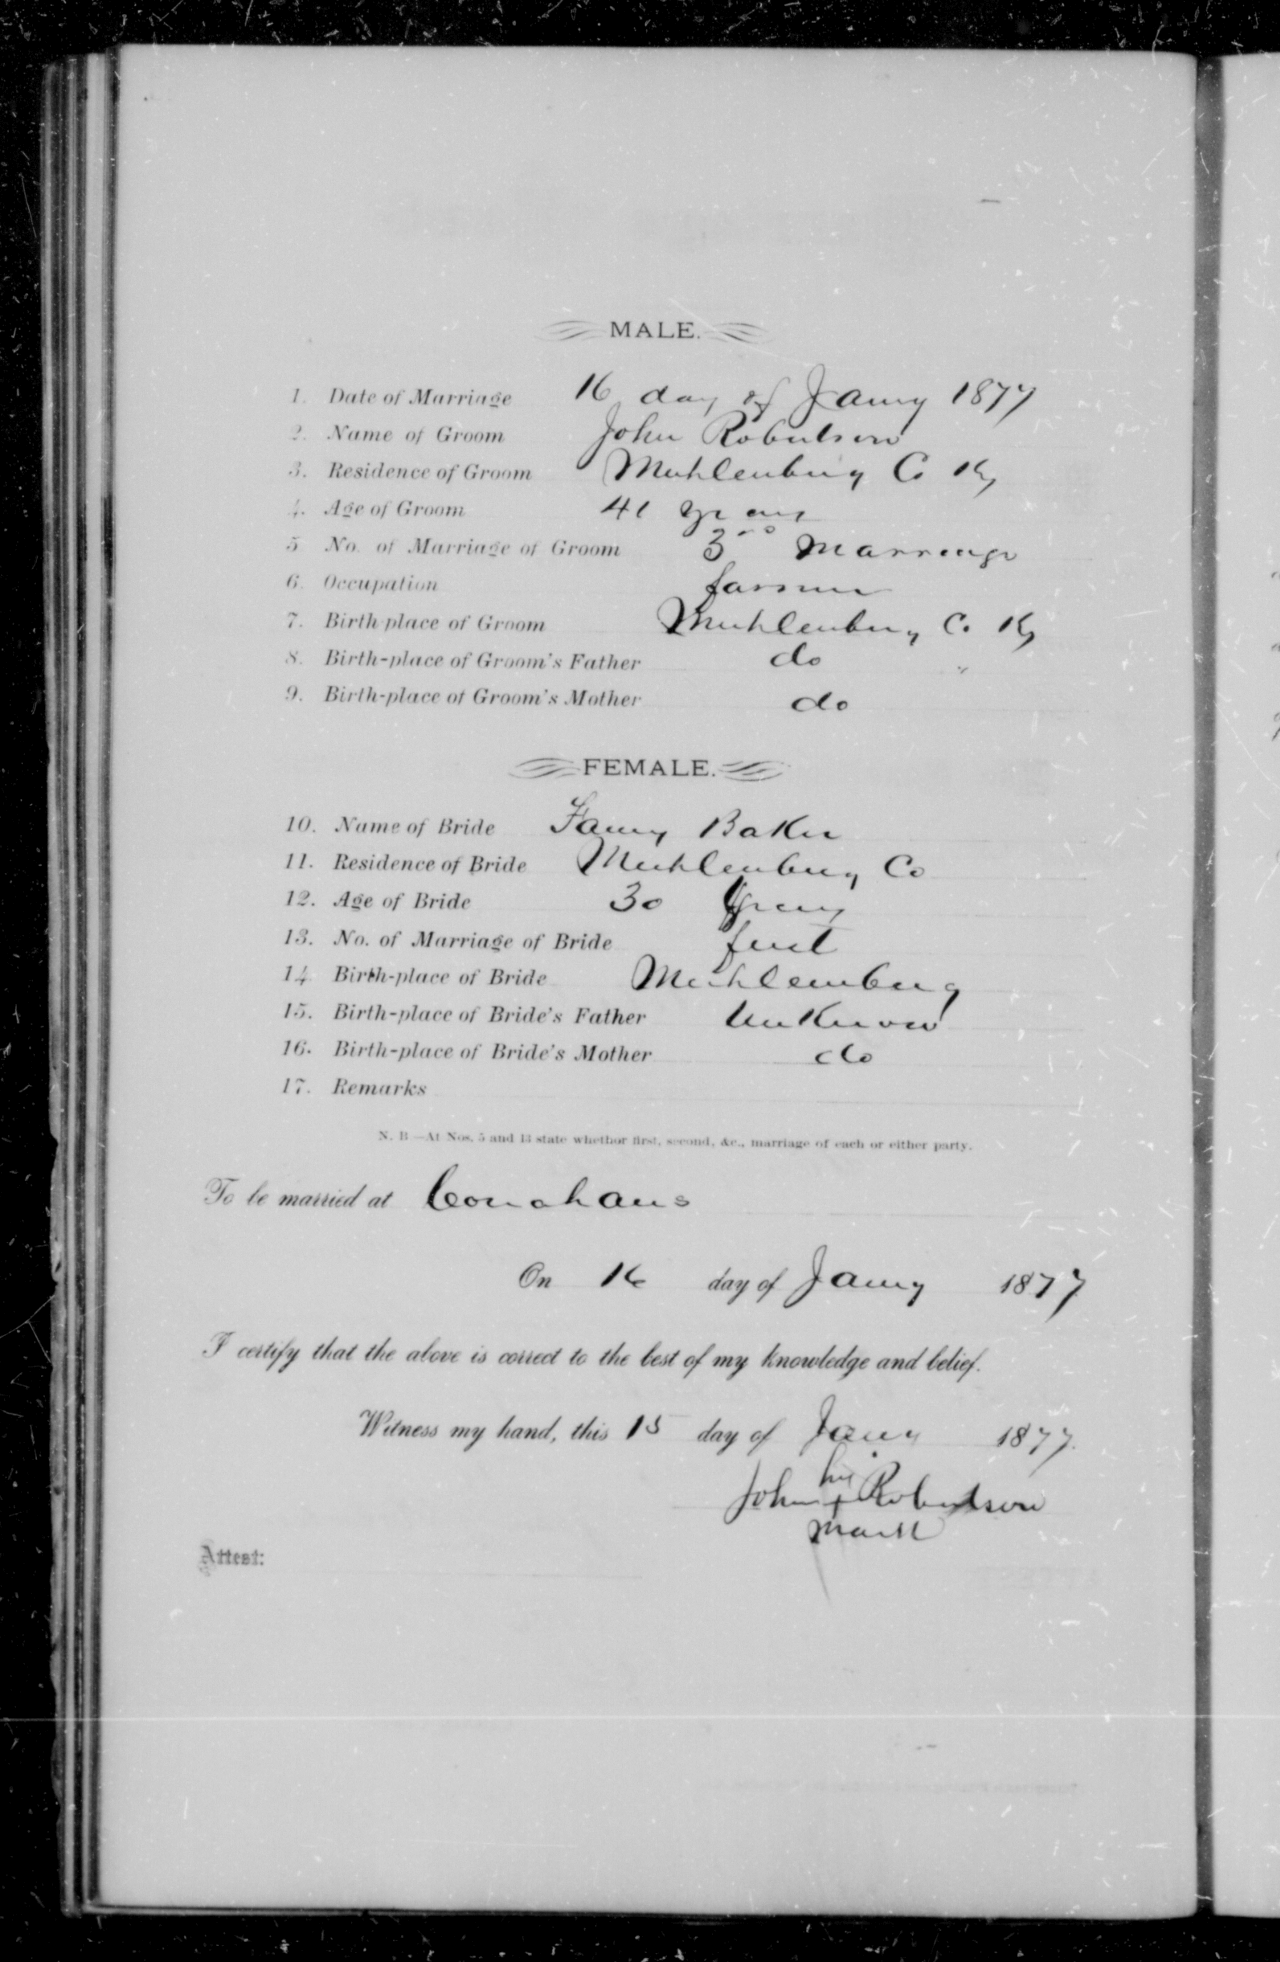 MALE.
1. Date of Marriage 16 day of Jany 1877
2. Name of Groom John Robertson
3. Residence of Groom Muhlenburg Co Ky
4. Age of Groom 41 years
5 No. of Marriage of Groom 3rd Marriage
6. Occupation farmer
7. Birth place of Groom Muhlenburg Co Ky
8. Birth-place of Groom's Father do "
9. Birth-place of Groom's Mother do
FEMALE.
10. Name of Bride Fanny Baker
11. Residence of Bride Muhlenburg Co
12. Age of Bride 30 years
13. No. of Marriage of Bride first
14 Birth-place of Bride Muhlenburg
15. Birth-place of Bride's Father Unknown
16. Birth-place of Bride's Mother do
17. Remarks
N. B—At Nos. 5 and 13 state whether first, second, &c., marriage of each or either party.
To be married at
On 16 day of Jany 1877
I certify that the above is correct to the best of my knowledge and belief.
Witness my hand, this 15 day of Jany 1877.
his
John + Robertson
mark
Attest: